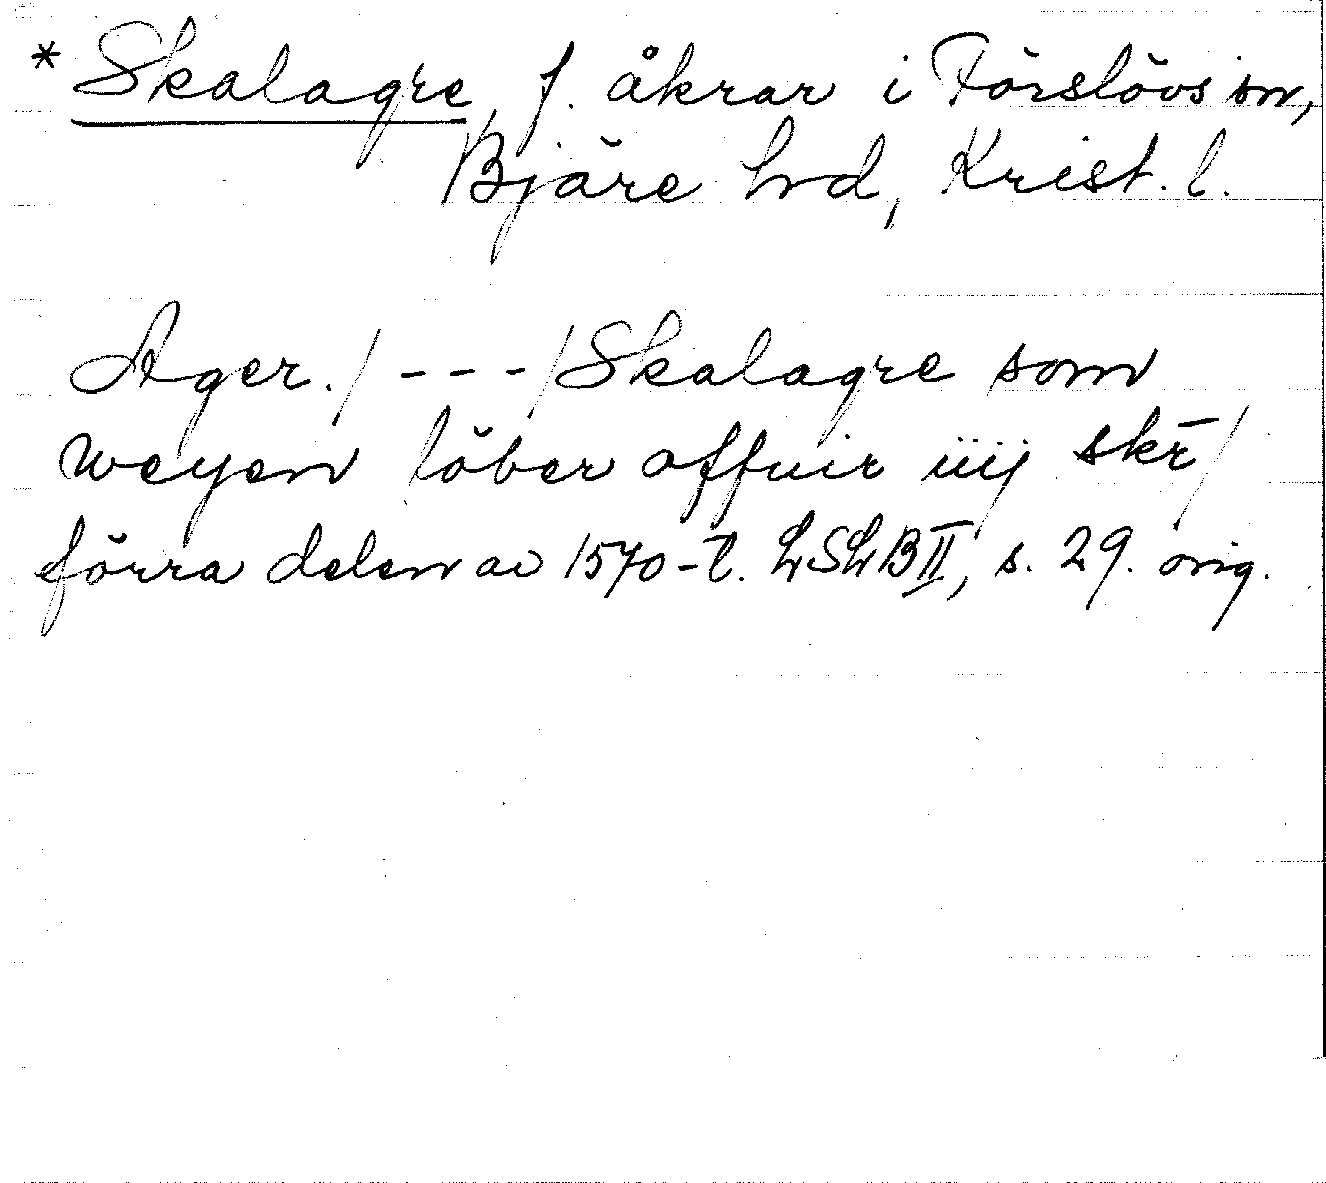 * Skalagre, f. åkrar i Förslövs sn,
Bjäre hrd, Krist. l.
Ager. / - - - / Skalagre som
weyen löber offuir iiij skr̄ /
förra delen av 1570-t. LSLB II, s. 29. orig.